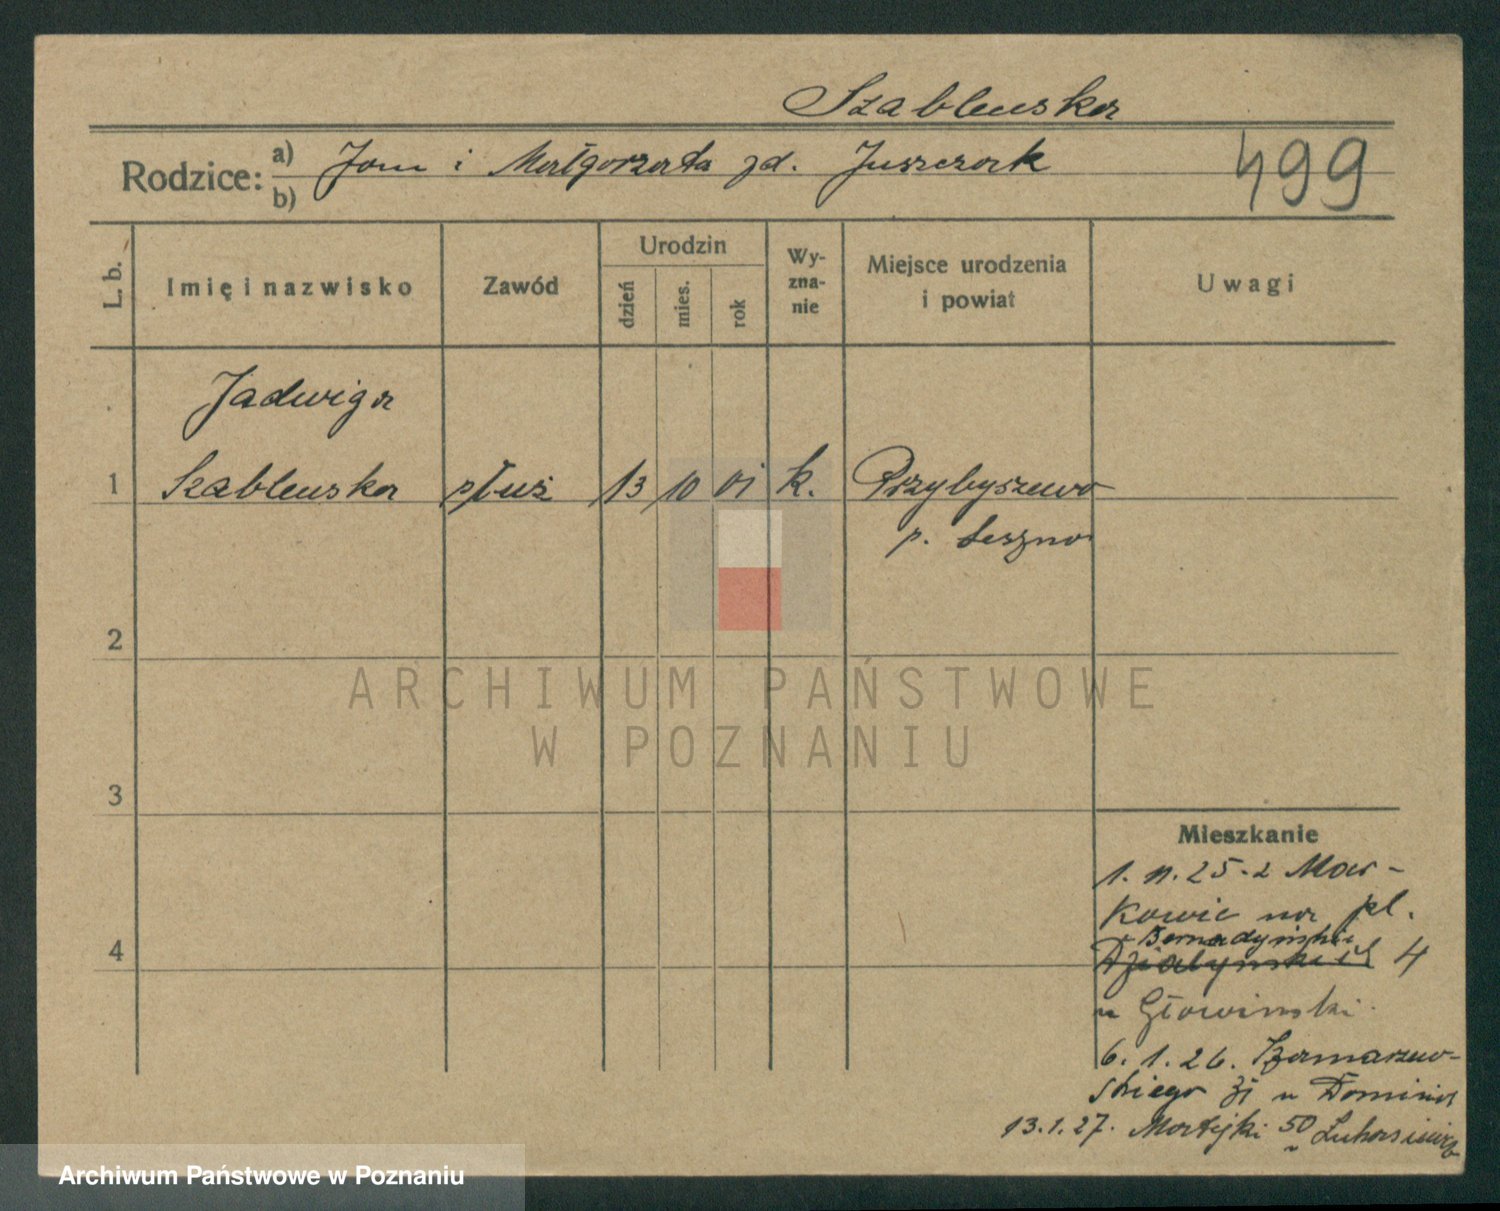 Szablewska
Rodzice: a) Jan i Małgorzata zd. Juszczak
b)
499
L. b. Imię i nazwisko Zawód Urodzin dzień mies. rok Wy-zna-nie Miejsce urodzenia i powiat Uwagi
Jadwiga
1 Szablewska służ 13 10 01 k. Przybyszewo
p. Leszno
2
ARCHIWUM PAŃSTWOWE
W POZNANIU
3
Mieszkanie
1. 11. 25. z Mar-
kowic na pl.
Bernadyński
4 Działyńskich 4
u Głowinski
6. 1. 26. Szamarzew-
skiego 31 u Dominik
13. 1. 27. Matejki 50 u
Archiwum Państwowe w Poznaniu